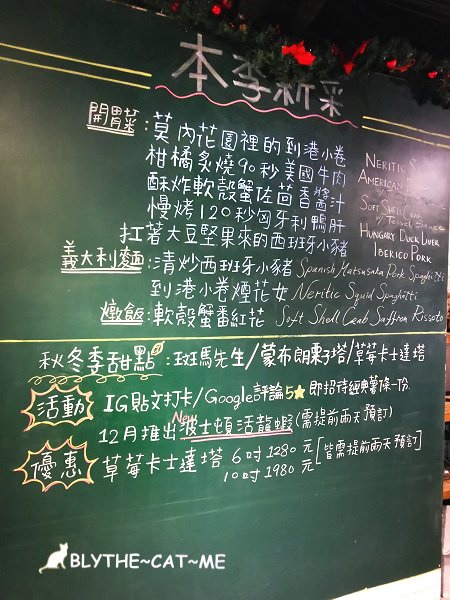 本季新菜
開胃菜:莫內花園裡的到港小卷
柑橘炙燒90秒美國牛肉
酥炸軟殼蟹佐茴香醬汁
慢烤120秒匈牙利鴨肝
扛著大豆堅果來的西班牙小豬
Neritic S
American
Soft Shell Crab
Hungary Duck Liver
Iberico Pork
義大利麵:清炒西班牙小豬 Spanish Matsusaka Pork Spaghetti
到港小卷煙花女 Neritic Squid Spaghetti
燉飯:軟殼蟹番紅花 Soft Shell Crab Saffron Risoto
秋冬季甜點:斑馬先生/蒙布朗栗子塔/草莓卡士達塔
活動 IG貼文打卡/Google評論5★即招待經典薯條一份
New
12月推出波士頓活龍蝦(需提前兩天預訂)
優惠 草莓卡士達塔 6吋1280元[皆需提前兩天預訂]
10吋1980元
BLYTHE~CAT~ME